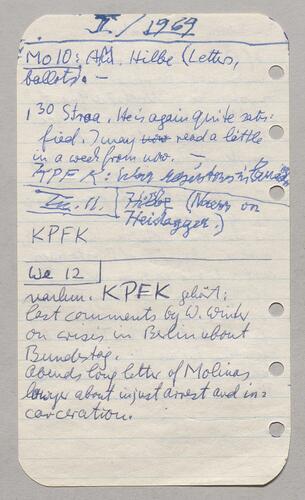 II / 1969
Mo 10: Afd. Hilbe (Letters,
ballots. —
1 30 Straa. He is again quite satis-
fied. I may now read a little
in a week from now. —
KPFK: War resistors in Canada
Tue. 11. Hilbe (Naess on
Heidegger.)
KPFK
We 12
vorhm. KPFK gehört:
last comments by W. Winter
on crisis in Berlin about
Bundestag.
abends long letter of Molinas
lawyer about injust arrest and in=
carceration.